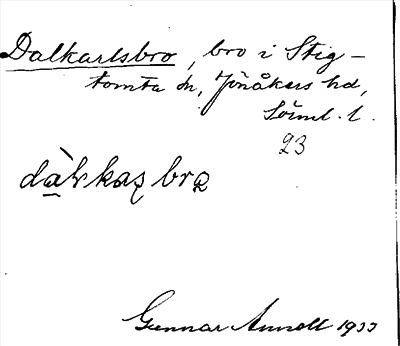 Dalkarlsbro, bro i Stig-
tomta sn, Jönåkers hd,
Söml. l.
23
dàlkaʂ brɷ
Gunnar Annell 1933